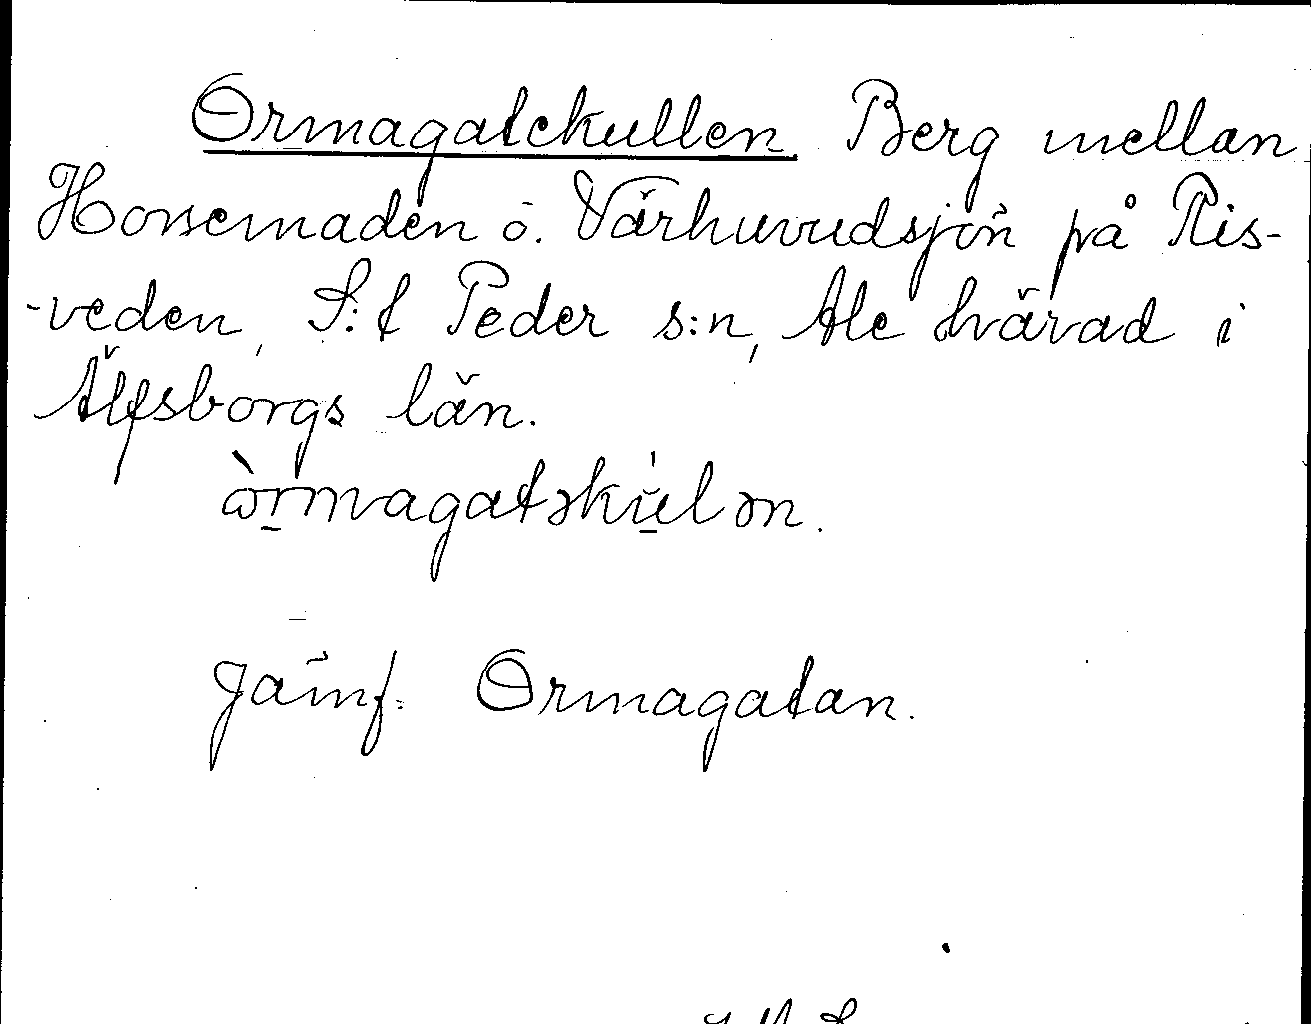 Ormagatekullen Berg mellan
Horsemaden o. Värhuvudsjön på Ris-
-veden, S:t Peder s:n, Ale härad i
Älfsborgs län.
òrmagatəkùlən.
Jämf. Ormagatan.